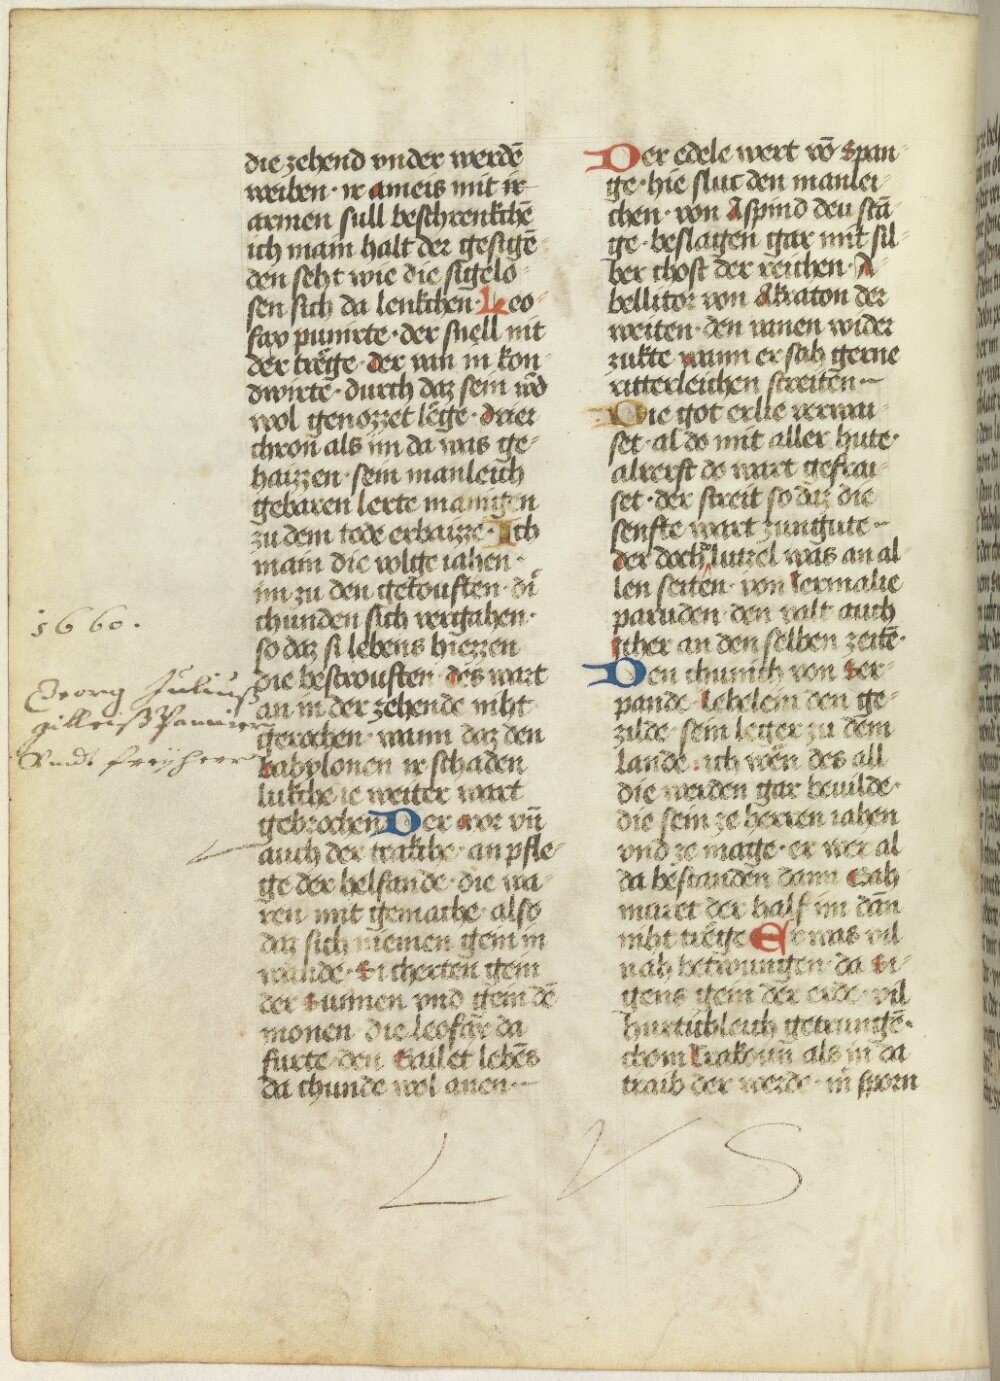 die zehend vnder werdē
weiben · ir ameis mit ir
armen sull beschrenkchē
ich main halt der gesigē
den seht wie die sigelo
sen sich da lenkchen · Leo
fax punirte · der snell nit
der trêge · der van in kon
dwirte · durch daz sein wō
wol genozzet lêge · drier
chron als im da was ge
haizzen · sein manleich
gebaren lerte manigen
zu dem tode erbaizze · Ich
main die volge iahen ·
im zu den getouften · di
chunden sich vergahen ·
so daz si lebens hiezzen
die bestrouften · des wart
an in der zehende niht
gerochen · wann daz den
babylonen ir schaden
lukche ie weiter wart
gebrochen Der mor vn̄
auch der trakche · an pfle
ge der helfande · die wa
ren mit gemache · also
daz sich niemen gein in
wande · Si cherten gein
der sunnen vnd gein dē
monen · die leofâx da
furte · den Gailet lebēs
da chunde wol anen ·
1660 ·
Georg Julius
Freyherr
Der edele wert vō Span
ge · hie sluc den manlei
chen · von Aspind deu stā
ge · beslagen gar mit sil
ber chost der reichen · A
bellitor von Akraton der
weiten · den vanen wider
zukte wann er sah gerne
ritterleichen streiten ·
Die got er lie verwai
set · al do mit aller hute ·
alrerst do wart gefrai
set · der streit so daz die
senfte wart zungute ·
der doch lutzel was an al
len seiten · von Jermalie
paruden · den valt auch
sicher an den selben zeitē ·
Den chunich von Ser
pande · lehelein den ge
zilde · sein leger zu dem
lande · ich wên des all
die werden gar beuilde ·
die sein ze herren iahen
vnd ze mage · er wer al
da bestanden dann Gah
muret der half im dān
niht trêge Er was vil
nah betwungen · da Si
gens gein der erde · vil
hurtûbleich getrungē ·
chom Trakoun als in da
traib der werde · mī sporn
L V S